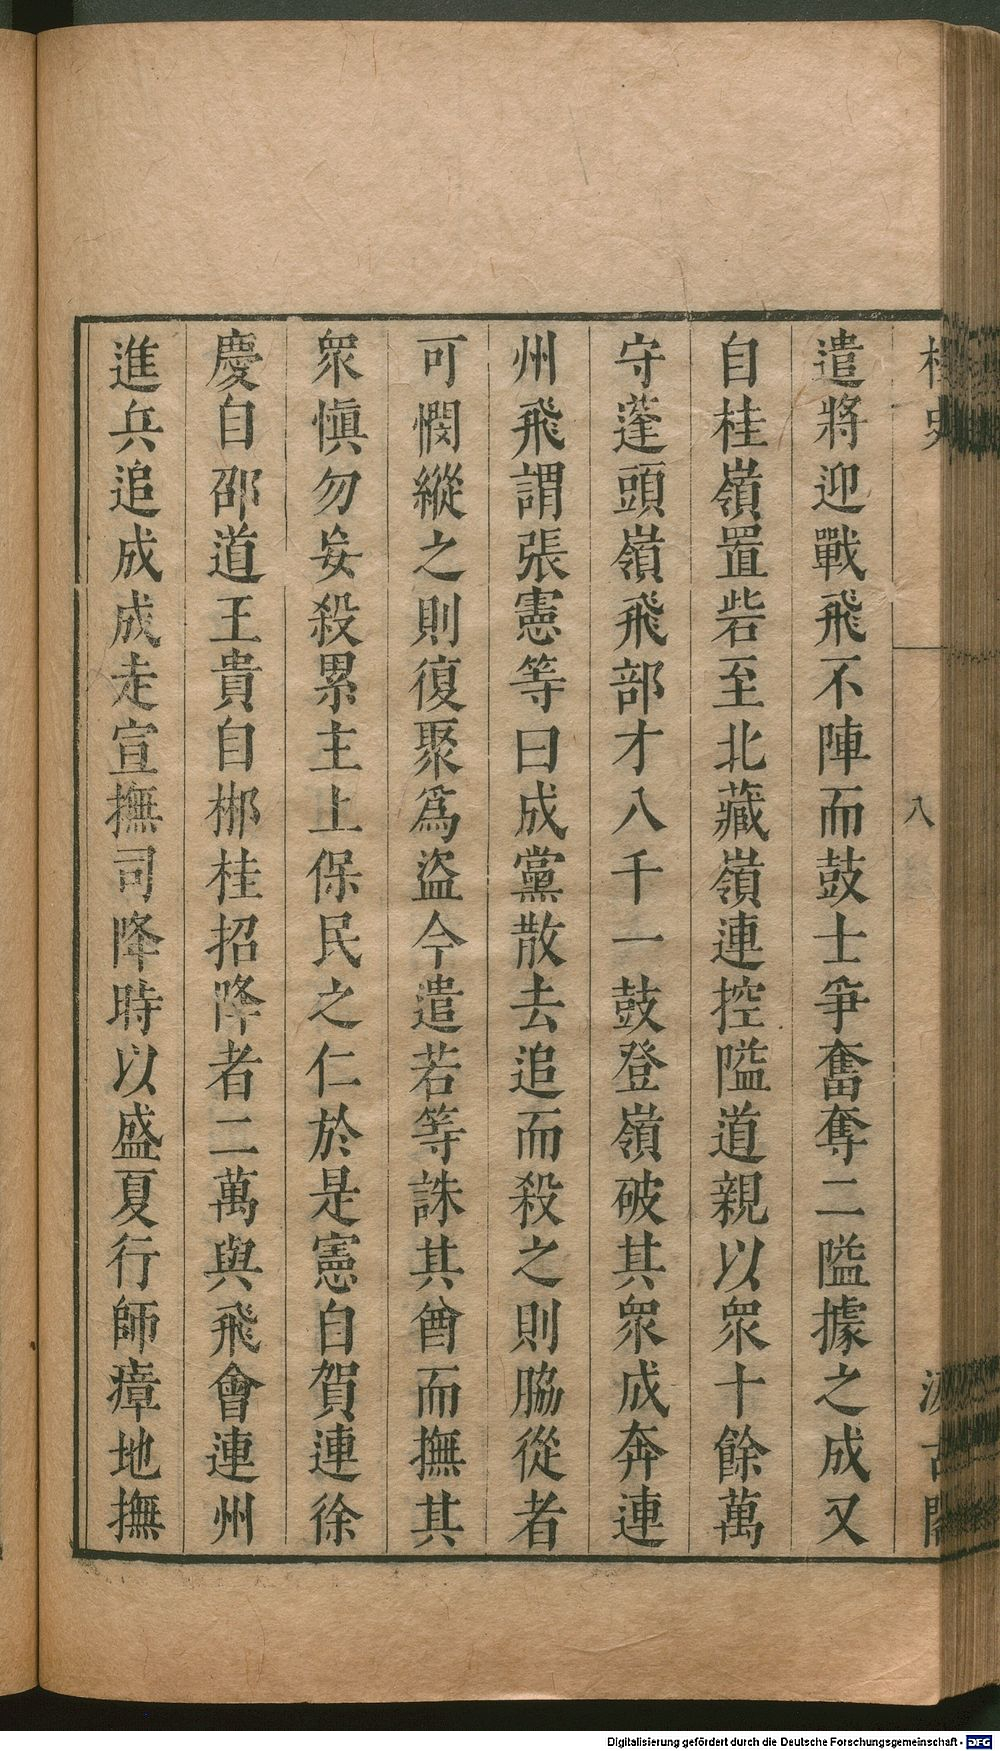 遣將迎戰飛不陣而鼓士爭奮奪二隘據之成又
自桂嶺置砦至北藏嶺連控隘道親以眾十餘萬
守蓬頭嶺飛部才八千一鼓登嶺破其眾成奔連
州飛謂張憲等曰成黨散去追而殺之則脇從者
可憫縱之則復聚爲盜今遣若等誅其酋而撫其
眾慎勿妄殺累主上保民之仁於是憲自賀連徐
慶自邵道王貴自郴桂招降者二萬與飛會連州
進兵追成成走宣撫司降時以盛夏行師瘴地撫
八
Digitalisierung gefördert durch die Deutsche Forschungsgemeinschaft - DFG